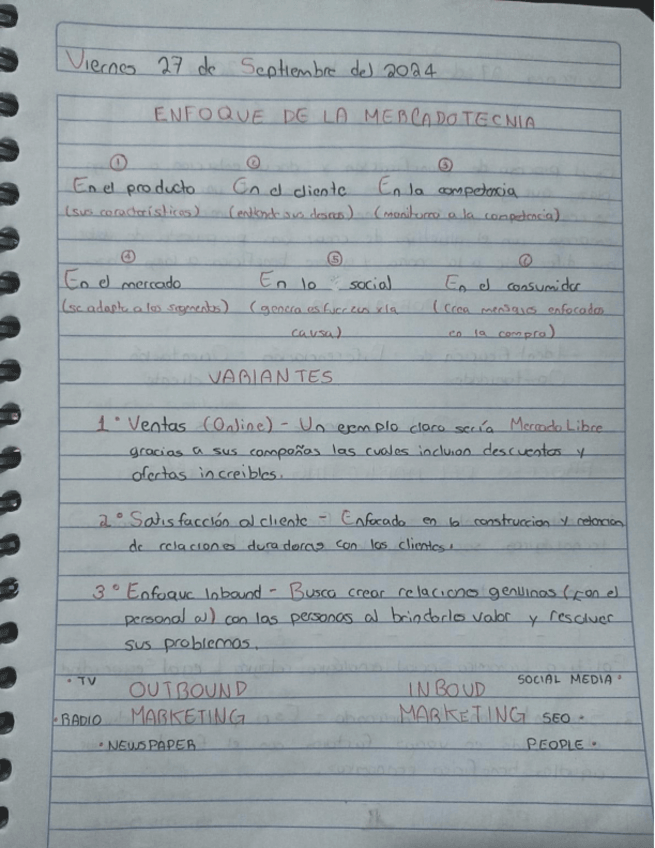 Viernes 27 de Septiembre del 2024
ENFOQUE DE LA MERCADOTECNIA
① ② ③
En el producto En el cliente En la competencia
(sus características) (entiende sus deseos) (monitoreo a la competencia)
④ ⑤ ⑥
En el mercado En lo social En el consumidor
(se adapta a los segmentos) (genera esfuerzos x la (Crea mensajes enfocados
causa) en la compra)
VARIANTES
1° Ventas (Online) - Un ejemplo claro sería Mercado Libre
gracias a sus campañas las cuales incluian descuentos y
ofertas increibles.
2° Satisfacción al cliente - Enfocado en la construccion y
de relaciones duraderas con los clientes.
3° Enfoque Inbound - Busca crear relaciones genuinas (con el
personal) con las personas al brindarles valor y resolver
sus problemas.
• TV OUTBOUND INBOUD SOCIAL MEDIA •
• RADIO MARKETING MARKETING SEO •
• NEWSPAPER PEOPLE •